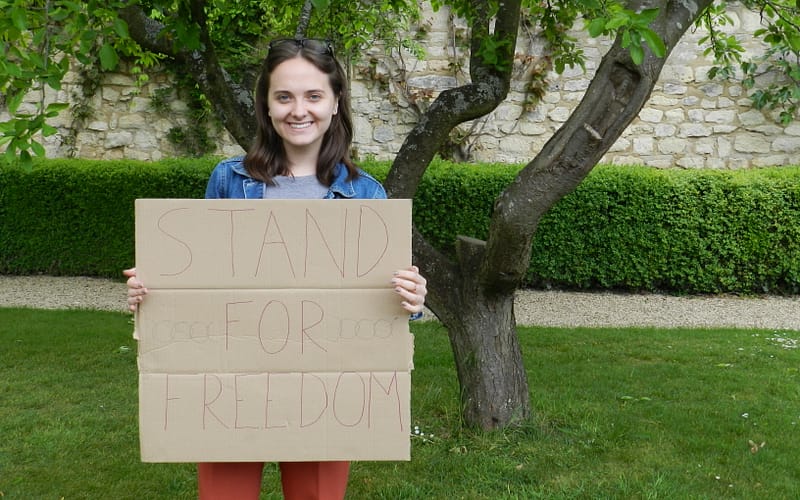 STAND
FOR
FREEDOM